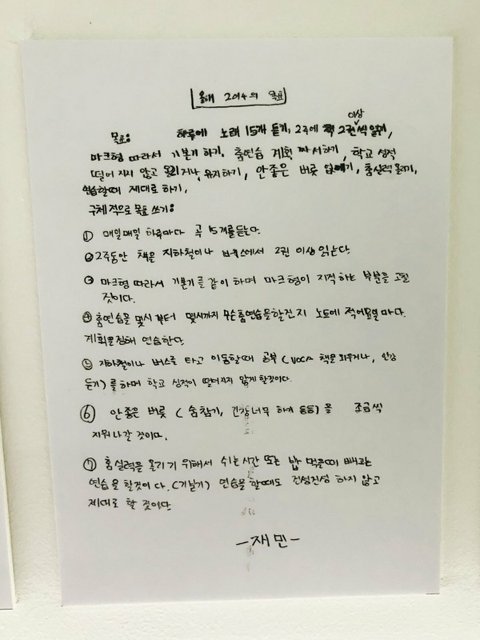 올해 2014의 목표
목표: 하루에 노래 15개 듣기, 2주에 책 2권 이상 씩 읽기,
마크형 따라서 기본기 하기, 춤연습 계획 짜서하기, 학교 성적
떨어지지 않고 올리거나, 유지하기, 안좋은 버릇 없애기, 춤실력 올리기,
연습할때 제대로 하기,
구체적으로 목표 쓰기:
① 매일매일 하루마다 곡 15개를 듣는다.
② 2주동안 책은 지하철이나 버스에서 2권 이상 읽는다.
③ 마크형 따라서 기본기를 같이 하며 마크형이 지적하는 부분을 고칠
것이다.
④ 춤연습을 몇시부터 몇시까지 무슨춤연습을할건지 노트에 적어
계획을 정해 연습한다.
⑤ 지하철이나 버스를 타고 이동할때 공부 (VOCA 책을 외우거나,
듣기)를 하며 학교 성적이 떨어지지 않게 할것이다.
⑥ 안좋은 버릇 (숨참기, 긴장너무 하기 등등)을 조금씩
지워나갈 것이다.
⑦ 춤실력을 올리기 위해서 쉬는시간 또는 밥 먹는데 빼고는
연습을 할것이다. (기본기) 연습을 할때도 건성건성 하지 않고
제대로 할 것이다
-재민-